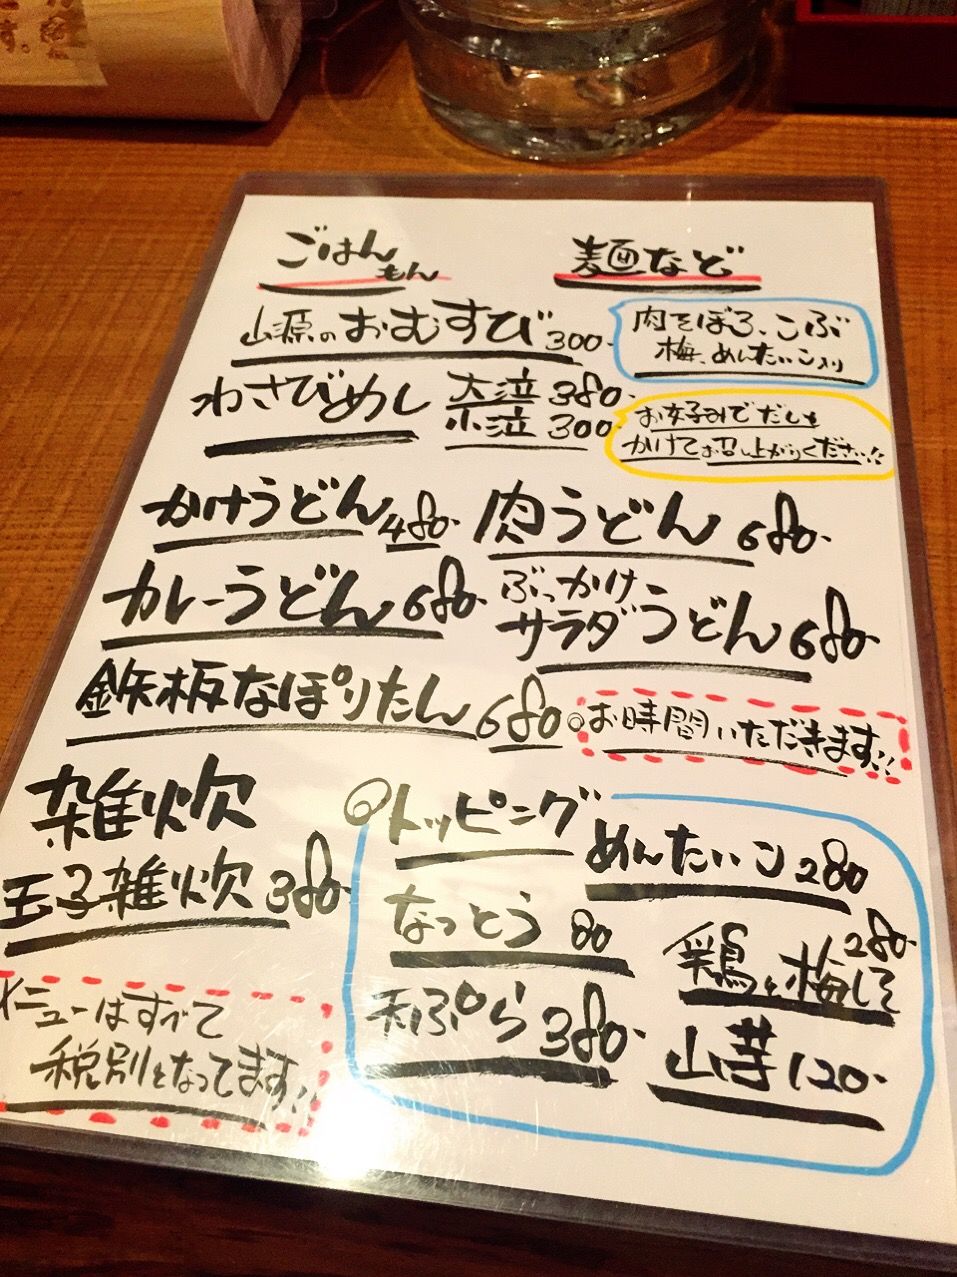 ごはんもん
麺など
山源のおむすび 300-
肉そぼろ、こぶ
梅、めんたいこ入り
わさびめし 大泣 380-
小泣 300-
お好みでだしを
かけてお召し上がりください!!
かけうどん 480-
肉うどん 680-
カレーうどん 680-
ぶっかけ
サラダうどん 680-
鉄板なぽりたん 680
お時間いただきます!!
雑炊
玉子雑炊 380-
◎トッピング
めんたいこ 280
なっとう 80
鶏と梅しそ 280-
天ぷら 380-
山芋 120-
メニューはすべて
税別となってます!!